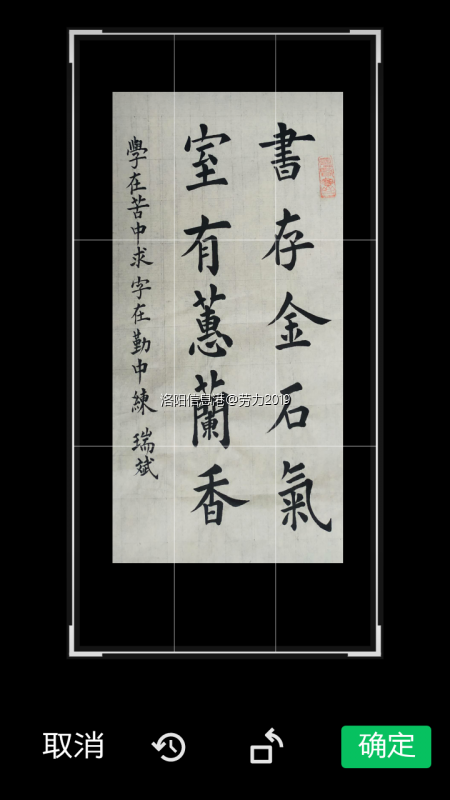 書存金石氣
室有蕙蘭香
學在苦中求字在勤中練 瑞斌
洛阳信息港@劳力2019
取消
确定